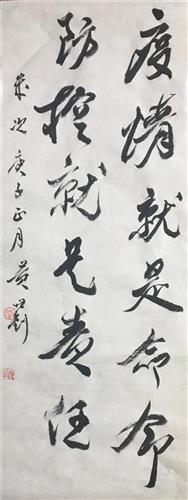 疫情就是命令
防控就是责任
岁次庚子正月黄刘